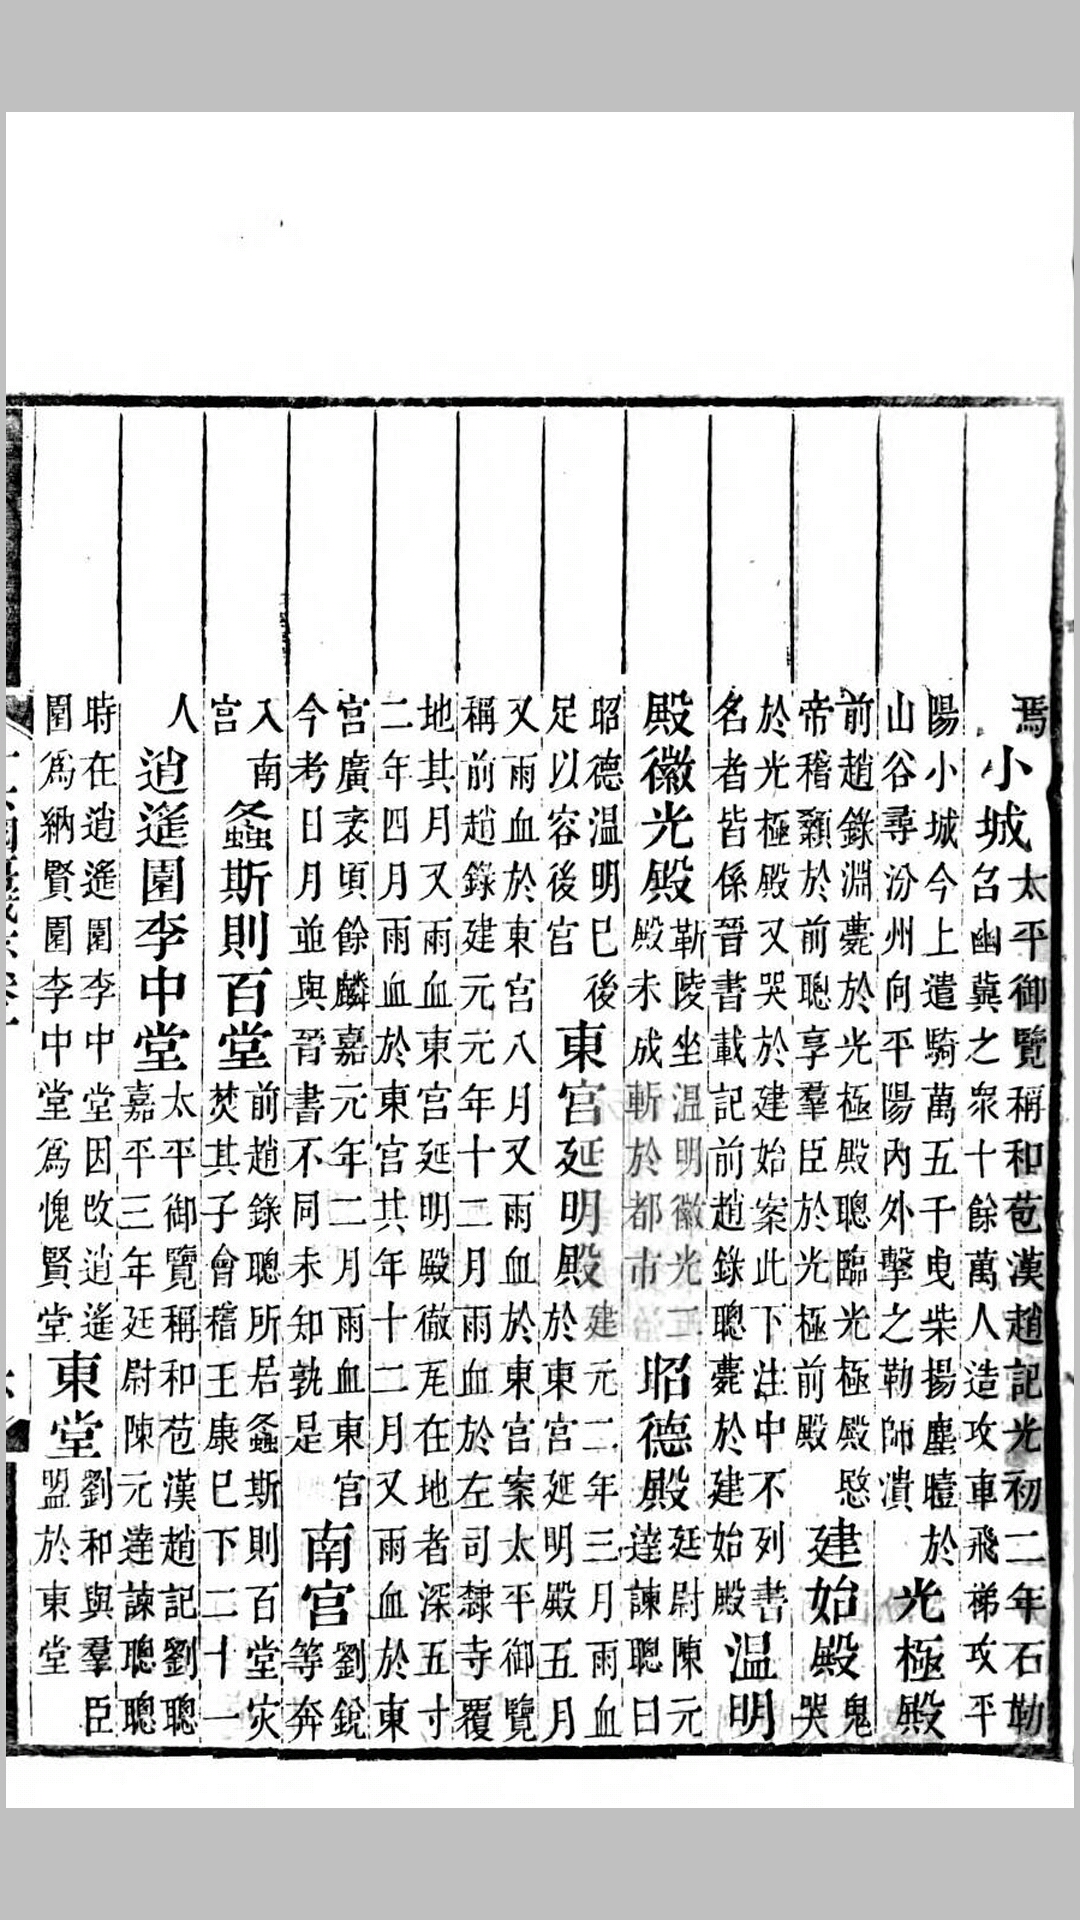 焉
小城
太平御覽稱和苞漢趙記光初二年石勒
召幽冀之眾十餘萬人造攻車飛梯攻平
陽小城今上遣騎萬五千曳柴揚塵曀於
山谷尋汾州向平陽內外擊之勒師潰
光極殿
前趙錄淵薨於光極殿聰臨光極殿愍
帝稽顙於前聰享羣臣於光極前殿
建始殿
鬼
哭
於光極殿又哭於建始案此下注中不列書
名者皆係晉書載記前趙錄聰薨於建始殿
溫明
殿徽光殿
靳陵坐溫明徽光二
殿未成斬於都市
昭德殿
廷尉陳元
達諫聰曰
昭德溫明已後
足以容後宮
東宮延明殿
建元二年三月雨血
於東宮延明殿五月
又雨血於東宮八月又雨血於東宮案太平御覽
稱前趙錄建元元年十二月雨血於左司隸寺覆
地其月又雨血東宮延明殿徹瓦在地者深五寸
二年四月雨血於東宮其年十二月又雨血於東
宮廣袤頃餘麟嘉元年二月雨血東宮
今考日月並與晉書不同未知孰是
南宮
劉銳
等奔
入南
宮
螽斯則百堂
前趙錄聰所居螽斯則百堂灾
焚其子會稽王康巳下二十一
人
逍遙園李中堂
太平御覽稱和苞漢趙記劉聰
嘉平三年廷尉陳元達諫聰聰
時在逍遙園李中堂因改逍遙
園爲納賢園李中堂爲愧賢堂
東堂
劉和與羣臣
盟於東堂